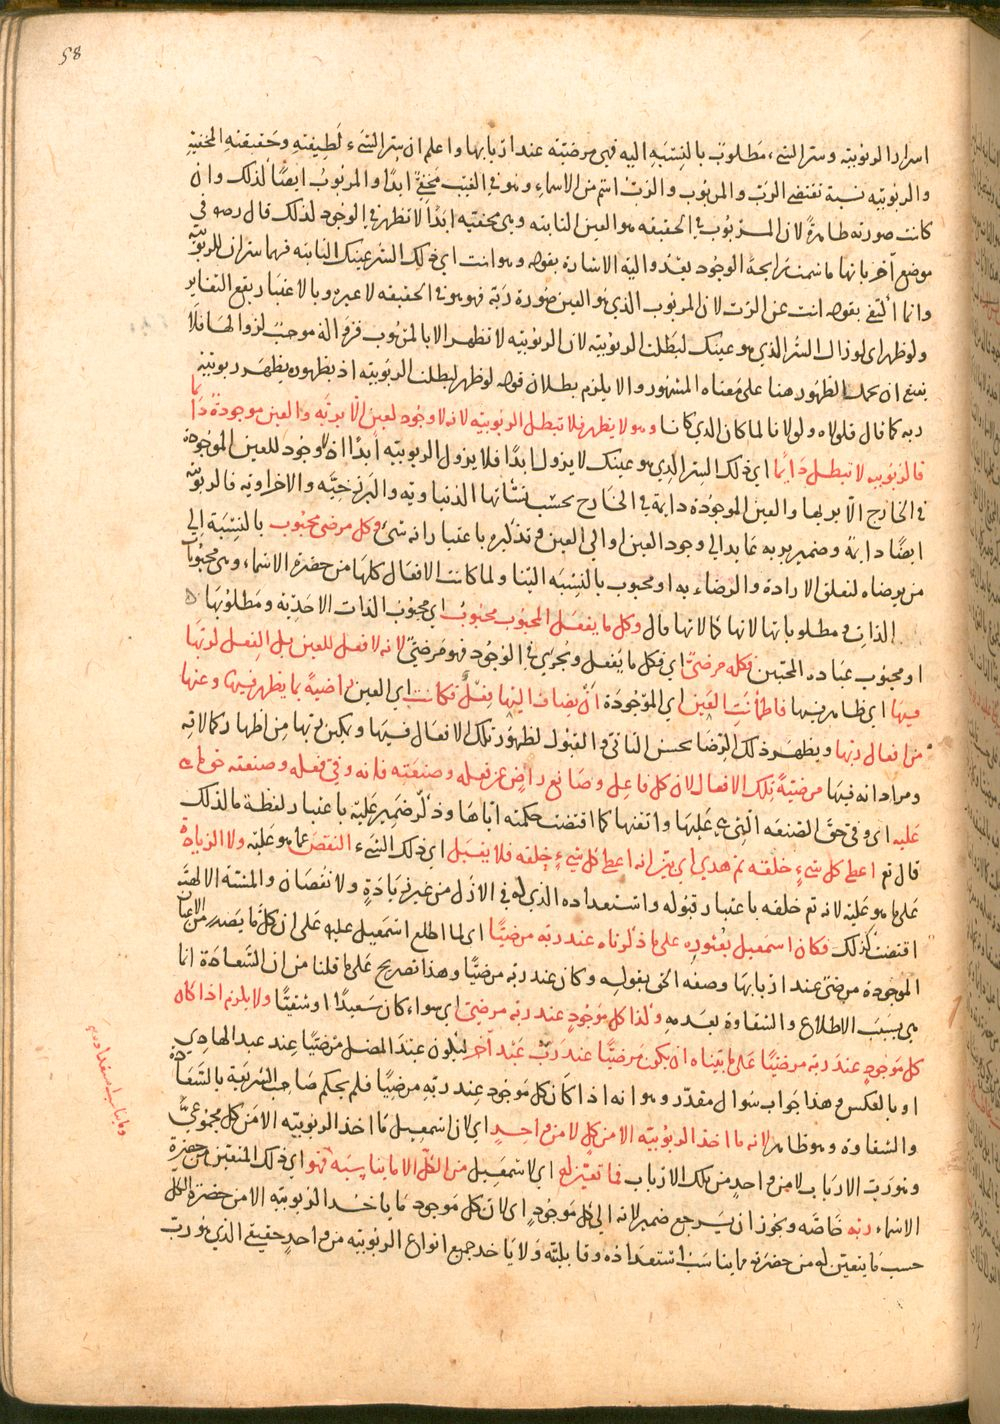 58
اسرار الربوبية وسر الشيء مطلوب بالنسبة اليه فهي مرضيته عند اربابها واعلم ان سر الشيء لطيفته وحقيقته المخفية
والربوبيه نسبة تقتضي الرب والمربوب والرب اسم من الاسماء وهو في الغيب مخفي ابدا والمربوب ايضا لذلك وان
كانت صورته ظاهرة لان المربوب في الحقيقه هو العين الثابته وهي مخفيه ابدا لا تظهر في الوجود لذلك قال رضه في
موضع آخر بانها ما شمت رايحة الوجود بعد واليه الاشارة بقوله وهو انت اي ذلك السر عينك الثابته فهما سران للربوبية
وانما اكتفى بقوله انت عن الرب لان المربوب الذي هو العين صورة ربه فهو هو في الحقيقه لا غيره وبالاعتبار يقع التغاير
ولو ظهر اي لو زال السر الذي هو عينك لبطلت الربوبيه لان الربوبيه لا تظهر الا بالمربوب فزواله موجب لزوالها فلا
ينبغي ان يحمل الظهور هنا على معناه المشهور والا يلزم بطلان قوله لو ظهر لبطلت الربوبيه اذ بظهوره يظهر ربوبية
ربه كما قال فلولاه ولولانا لما كان الذي كانا وهو لا يظهر فلا تبطل الربوبيه لانه لا وجود لعين الا بربه والعين موجودة دايما
فالربوبيه لا تبطل دايما اي ذلك السر الذي هو عينك لا يزول ابدا فلا يزول الربوبيه ابدا اذ لا وجود للعين الموجودة
في الخارج الا بربها والعين الموجودة دايمة في الخارج بحسب نشاتها الدنياوية والبرزخيه والاخراوية فالربوبية
ايضا دايمة وضمير بربه عايد الي وجود العين او الي العين وتذكيره باعتبار انه شي وكل مرضي محبوب بالنسبة الى
من يرضاه لتعلق الارادة والرضاء به او محبوب بالنسبه الينا ولما كانت الافعال كلها من حضرة الاسماء وهي محبوبات
الذات ومطلوباتها لانها كمالاتها قال وكل ما يفعل المحبوب محبوب اي محبوب الذات الاحدية ومطلوبها
او محبوب عباده المحبين فكله مرضي اي فكل ما يفعل ويجري في الوجود فهو مرضي لانه لا فعل للعين بل الفعل لربها
فيها اي ظاهر فيها فاطمأنت العين اي الموجودة ان يضاف اليها فعل فكانت اي العين راضية بما يظهر فيها وعنها
من افعال ربها ويظهر ذلك الرضا بحسن التاتي والقبول لظهور تلك الافعال فيها وتمكين ربها من اظهار كمالاته
ومراداته فيها مرضية تلك الافعال لان كل فاعل وصانع راض عن فعله وصنعته فانه وفى فعله وصنعته حق ما هي
عليه اي وفى حق الصنعه التي هي عليها واتقنها كما اقتضت حكمته اياها وذكر ضمير عليه باعتبار لفظة ما لذلك
قال تم اعطى كل شيء خلقه ثم هدي اي بين انه اعطى كل شيء خلقه فلا يقبل اي ذلك الشيء النقص عما هو عليه ولا الزيادة
على ما هو عليه لانه تم خلقه باعتبار قبوله واستعداده الذي له في الازل من غير زيادة ولا نقصان والمشية الالهية
اقتضت كذلك فكان اسمعيل بعثوره على ما ذكرناه عند ربه مرضيا اي لما اطلع اسمعيل عليه على ان كل ما يصدر من الاعيان
الموجودة مرضي عند اربابها وصفه الحق بقوله وكان عند ربه مرضيا وهذا تصريح على ما قلنا من ان السعادة انما
هي بسبب الاطلاع والشقاوة بعدمه وكذا كل موجود عند ربه مرضي اي سواء كان سعيدا او شقيا ولا يلزم اذا كان
كل موجود عند ربه مرضيا على ما بيناه ان يكون مرضيا عند رب عبد آخر ليكون عند المضل مرضيا عند عبد الهادي
او بالعكس وهذا جواب سوال مقدر وهو انه اذا كان كل موجود عند ربه مرضيا فلم يحكم صاحب الشريعة بالسعادة
والشقاوة وهو ظاهر لانه ما اخذ الربوبيه الا من كل لا من واحد اي لان اسمعيل ما اخذ الربوبيه الا من كل مجموعي
وهو رب الارباب لا من واحد من تلك الارباب فما تعين له اي لاسمعيل من الكل الا ما يناسبه فهو اي ذلك المتعين من حضرة
الاسماء ربه خاصه ويجوز ان يرجع ضمير لانه الى كل موجود اي لان كل موجود ما ياخذ الربوبيه الا من حضرة الكل
حسب ما يتعين له من حضرته ما يناسب استعداده وقابليته ولا ياخذ جميع انواع الربوبيه من واحد حقيقي الذي هو رب